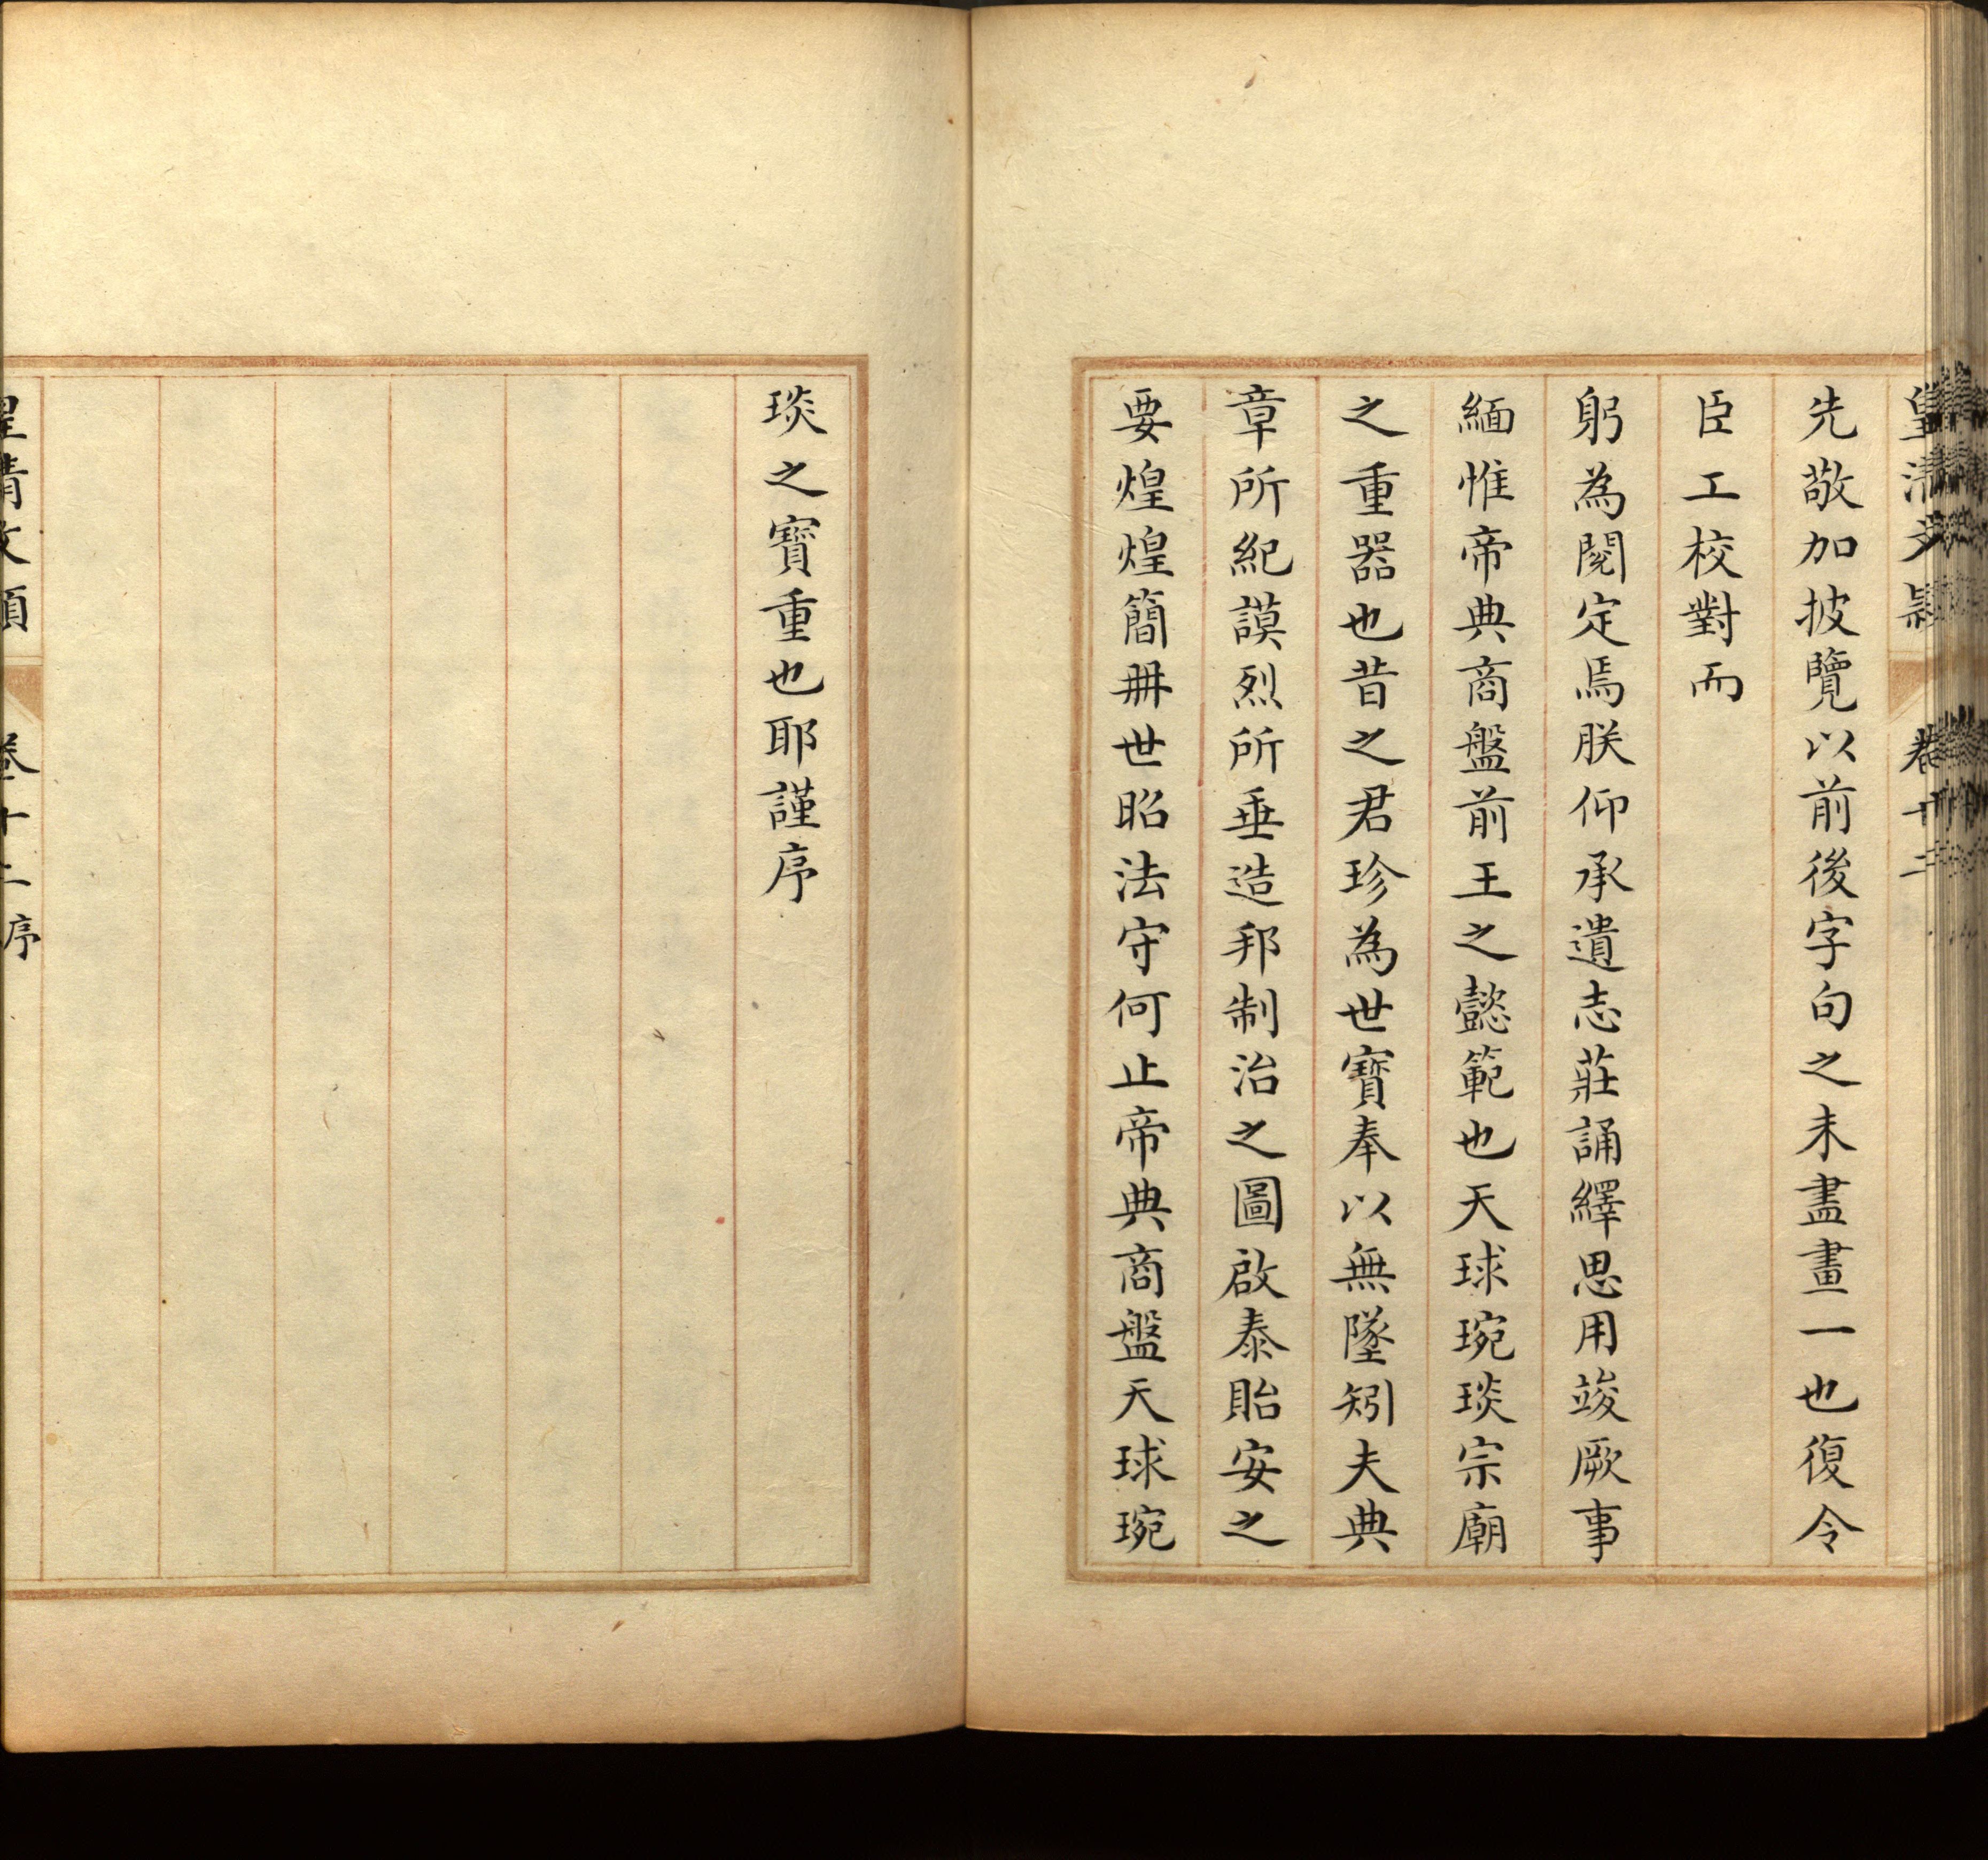 皇清文穎 卷十二
先敬加披覽以前後字句之未盡畫一也復令
臣工校對而
躬為閱定焉朕仰承遺志莊誦繹思用竣厥事
緬惟帝典商盤前王之懿範也天球琬琰宗廟
之重器也昔之君珍為世寶奉以無墜矧夫典
章所紀謨烈所垂造邦制治之圖啟泰貽安之
要煌煌簡冊世昭法守何止帝典商盤天球琬
琰之寶重也耶謹序
皇清文穎 卷十二序